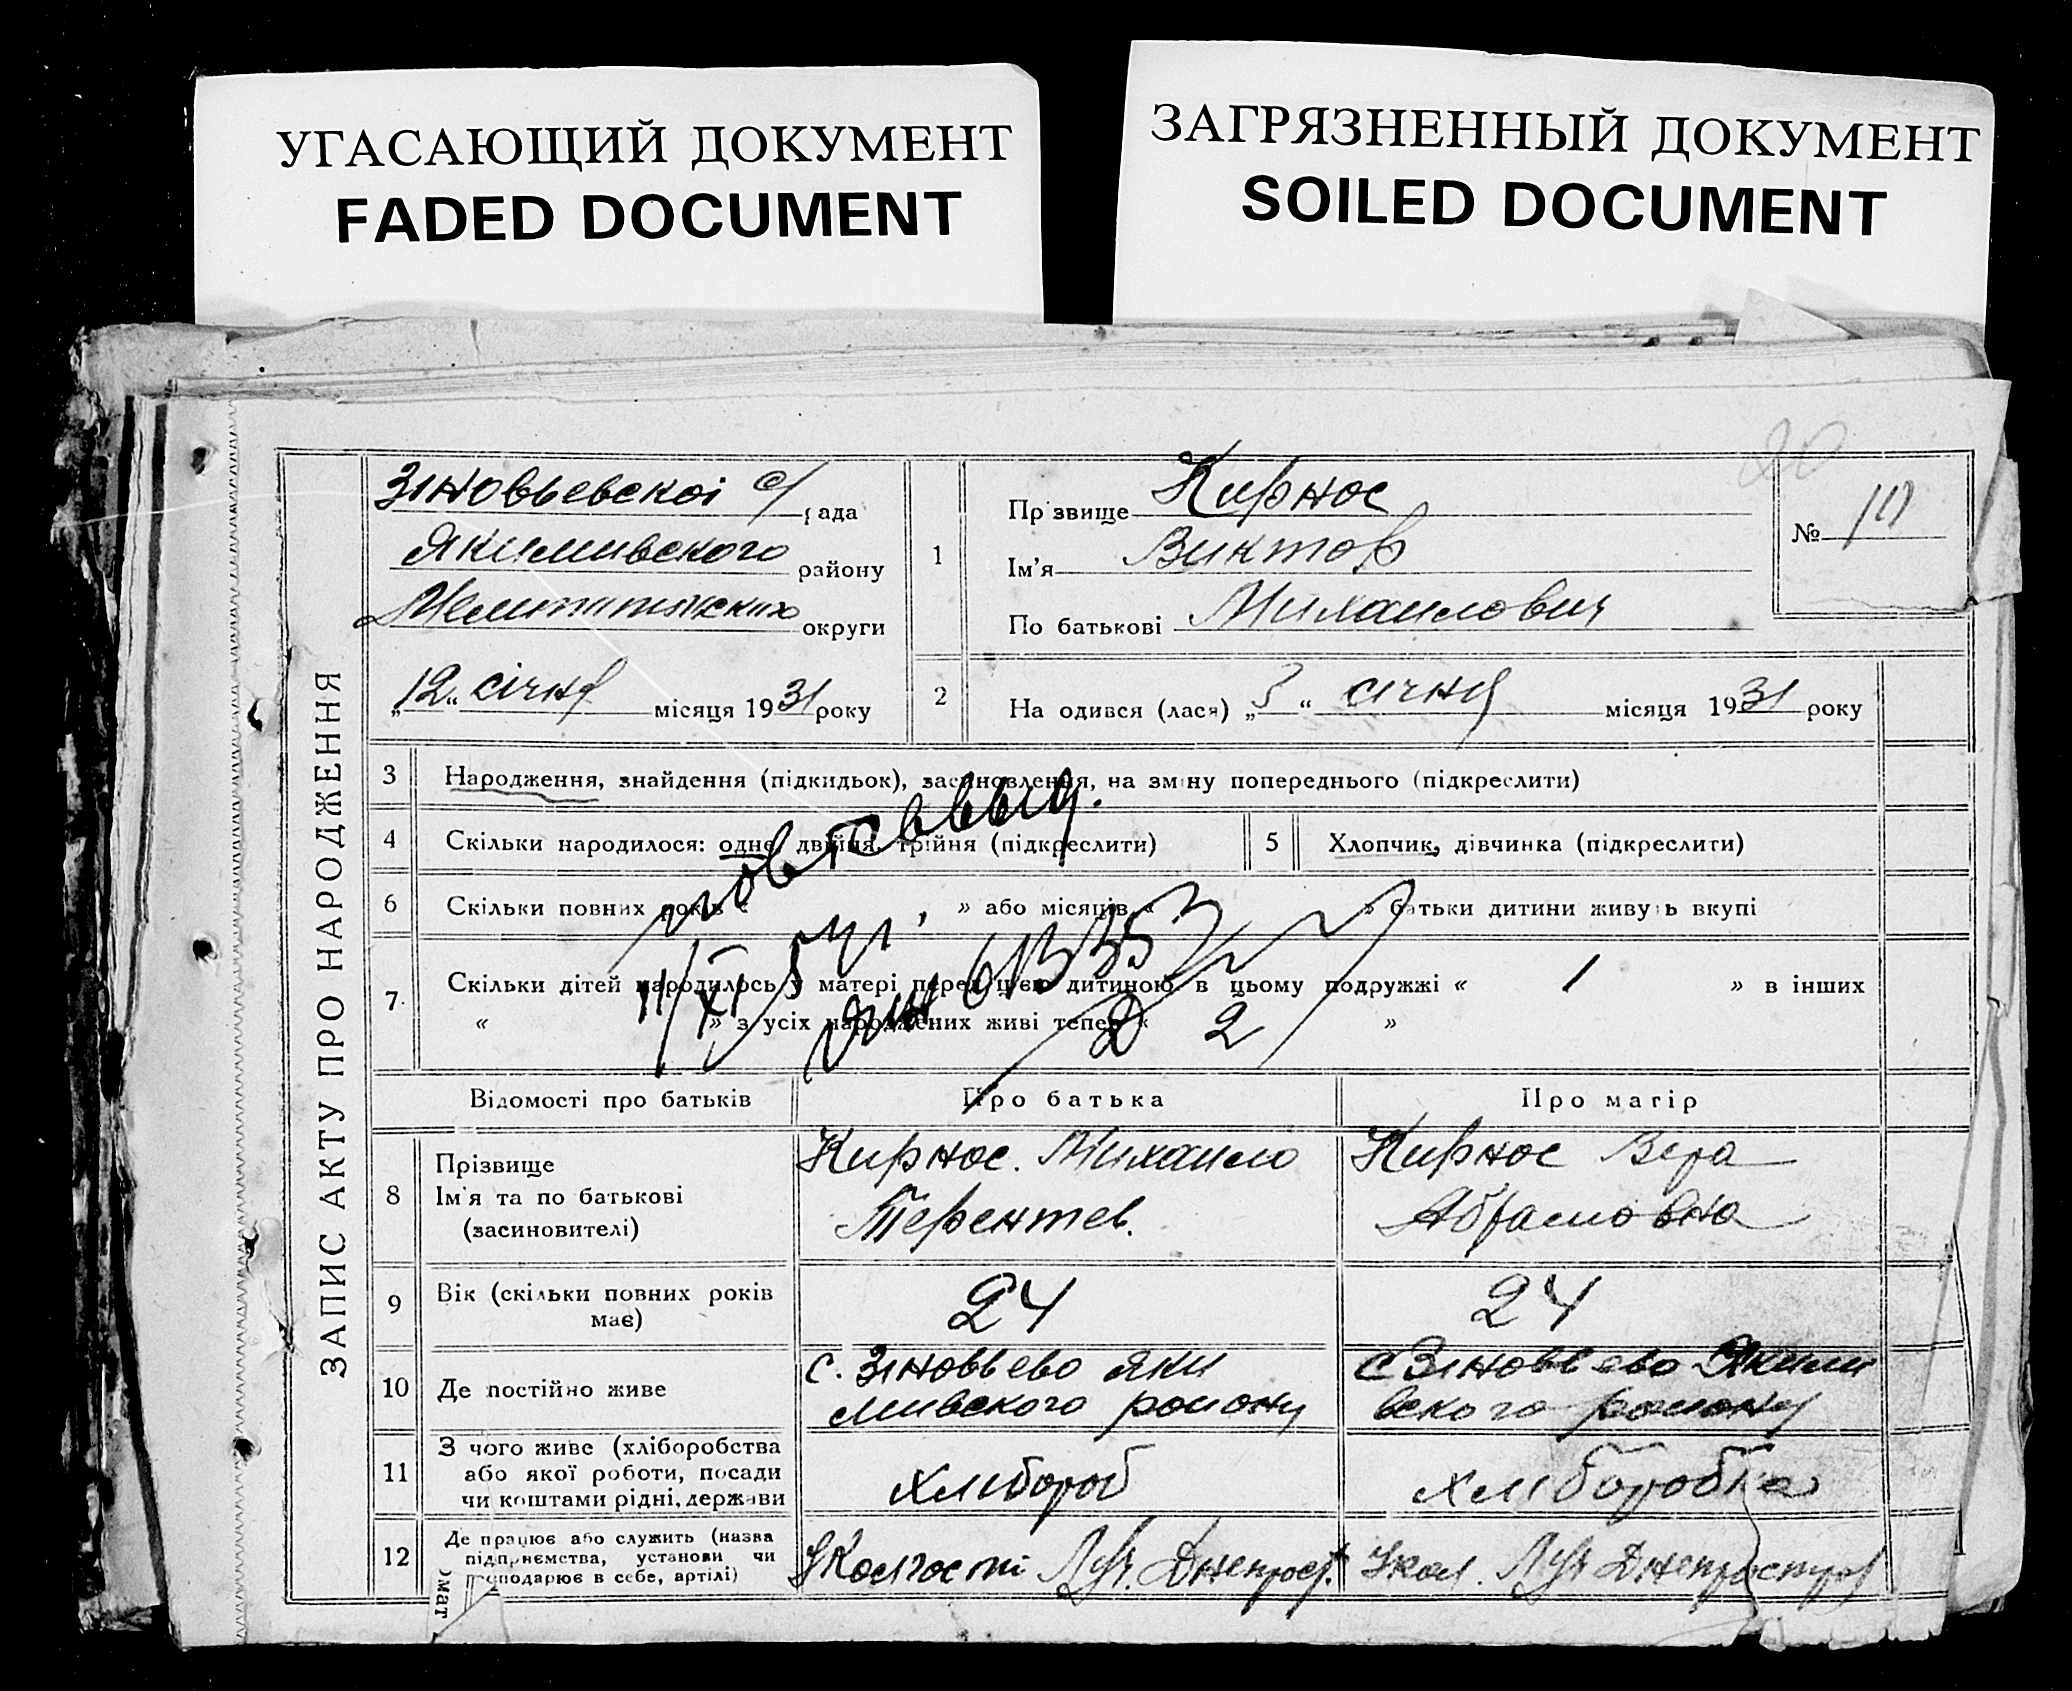 УГАСАЮЩИЙ ДОКУМЕНТ
FADED DOCUMENT
ЗАГРЯЗНЕННЫЙ ДОКУМЕНТ
SOILED DOCUMENT
ЗАПИС АКТУ ПРО НАРОДЖЕННЯ
Зіновьевскоі с/рада
Якимивского району
округи
„12“ січня місяця 1931 року
20
№
1
Прізвище Кирнос
Ім'я Виктор
По батькові Михаилович
2
На одився (лася) „3“ січня місяця 1931 року
3 Народження, знайдення (підкидьок), засиновлення, на зміну попереднього (підкреслити)
4 Скільки народилося: одне, двійня, трійня (підкреслити)
5 Хлопчик, дівчинка (підкреслити)
6 Скільки повних років « » або місяців « » батьки дитини живуть вкупі
7. Скільки дітей народилось у матері перед цією дитиною в цьому подружжі « 1 » в інших
« » з усіх народжених живі тепер « 2 »
повт. выд.
Відомості про батьків
Про батька
Про матір
8 Прізвище
Ім'я та по батькові
(засиновителі)
Кирнос. Михаило
Терентев.
Кирнос Вера
Абрамовна
9 Вік (скільки повних років має)
24
24
10 Де постійно живе
с. Зіновьево Яки
мивского району
с Зіновьево Якими
вского району
11 З чого живе (хліборобства
або якої роботи, посади
чи коштами рідні, держави
хлибороб
хлиборобка
12 Де працює або служить (назва
підприємства, установи чи
господарює в себе, артілі)
У Колгоспі Луч. Днепрост.
У кол. Луч Днепростроя